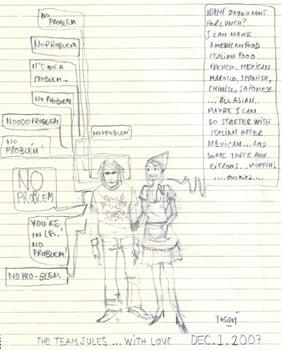 NO
PROBLEM
NO PROBLEM
IT'S NOT A
PROBLEM...
NO PROBLEM
NOOOO PROBLEM
NO PROBLEM
NO
PROBLEM'
NO
PROBLEM
YOU'RE,
IN LA.
NO
PROBLEM
NO PRO-BLEM
WHAT DO YOU WANT
FOR LUNCH?
I CAN MAKE
AMERICAN FOOD
ITALIAN FOOD
FRENCH, MEXICAN
SPANISH,
CHINESE, JAPONESE
... ALL ASIAN.
MAYBE I CAN
DO STARTER WITH
ITALIAN AFTER
MEXICAN... AND
SOME
MUFFINS
THE TEAM JULES ... WITH LOVE DEC. 1. 2007